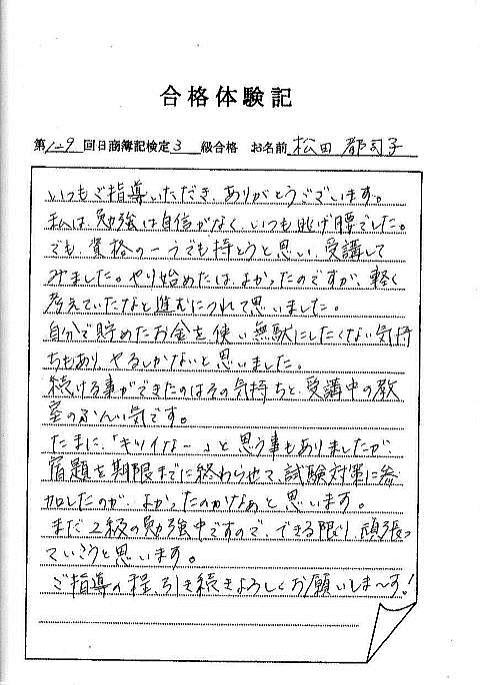 合格体験記
第129回日商簿記検定3級合格 お名前 松田 都司子
いつもご指導いただき、ありがとうございます。
私は、勉強は自信がなく、いつも逃げ腰でした。
でも、資格の一つでも持とうと思い、受講して
みました。やり始めたは、よかったのですが、軽く
考えていたなと進むにつれて思いました。
自分で貯めたお金を使い無駄にしたくない気持
ちもあり、やるしかないと思いました。
続ける事ができたのはその気持ちと、受講中の教
室のふんい気です。
たまに、「キツイなー」と思う事もありましたが、
宿題を期限までに終わらせて、試験対策に参
加したのが、よかったのかなあと思います。
まだ2級の勉強中ですので、できる限り、頑張っ
ていこうと思います。
ご指導の程、引き続きよろしくお願いしま〜す!